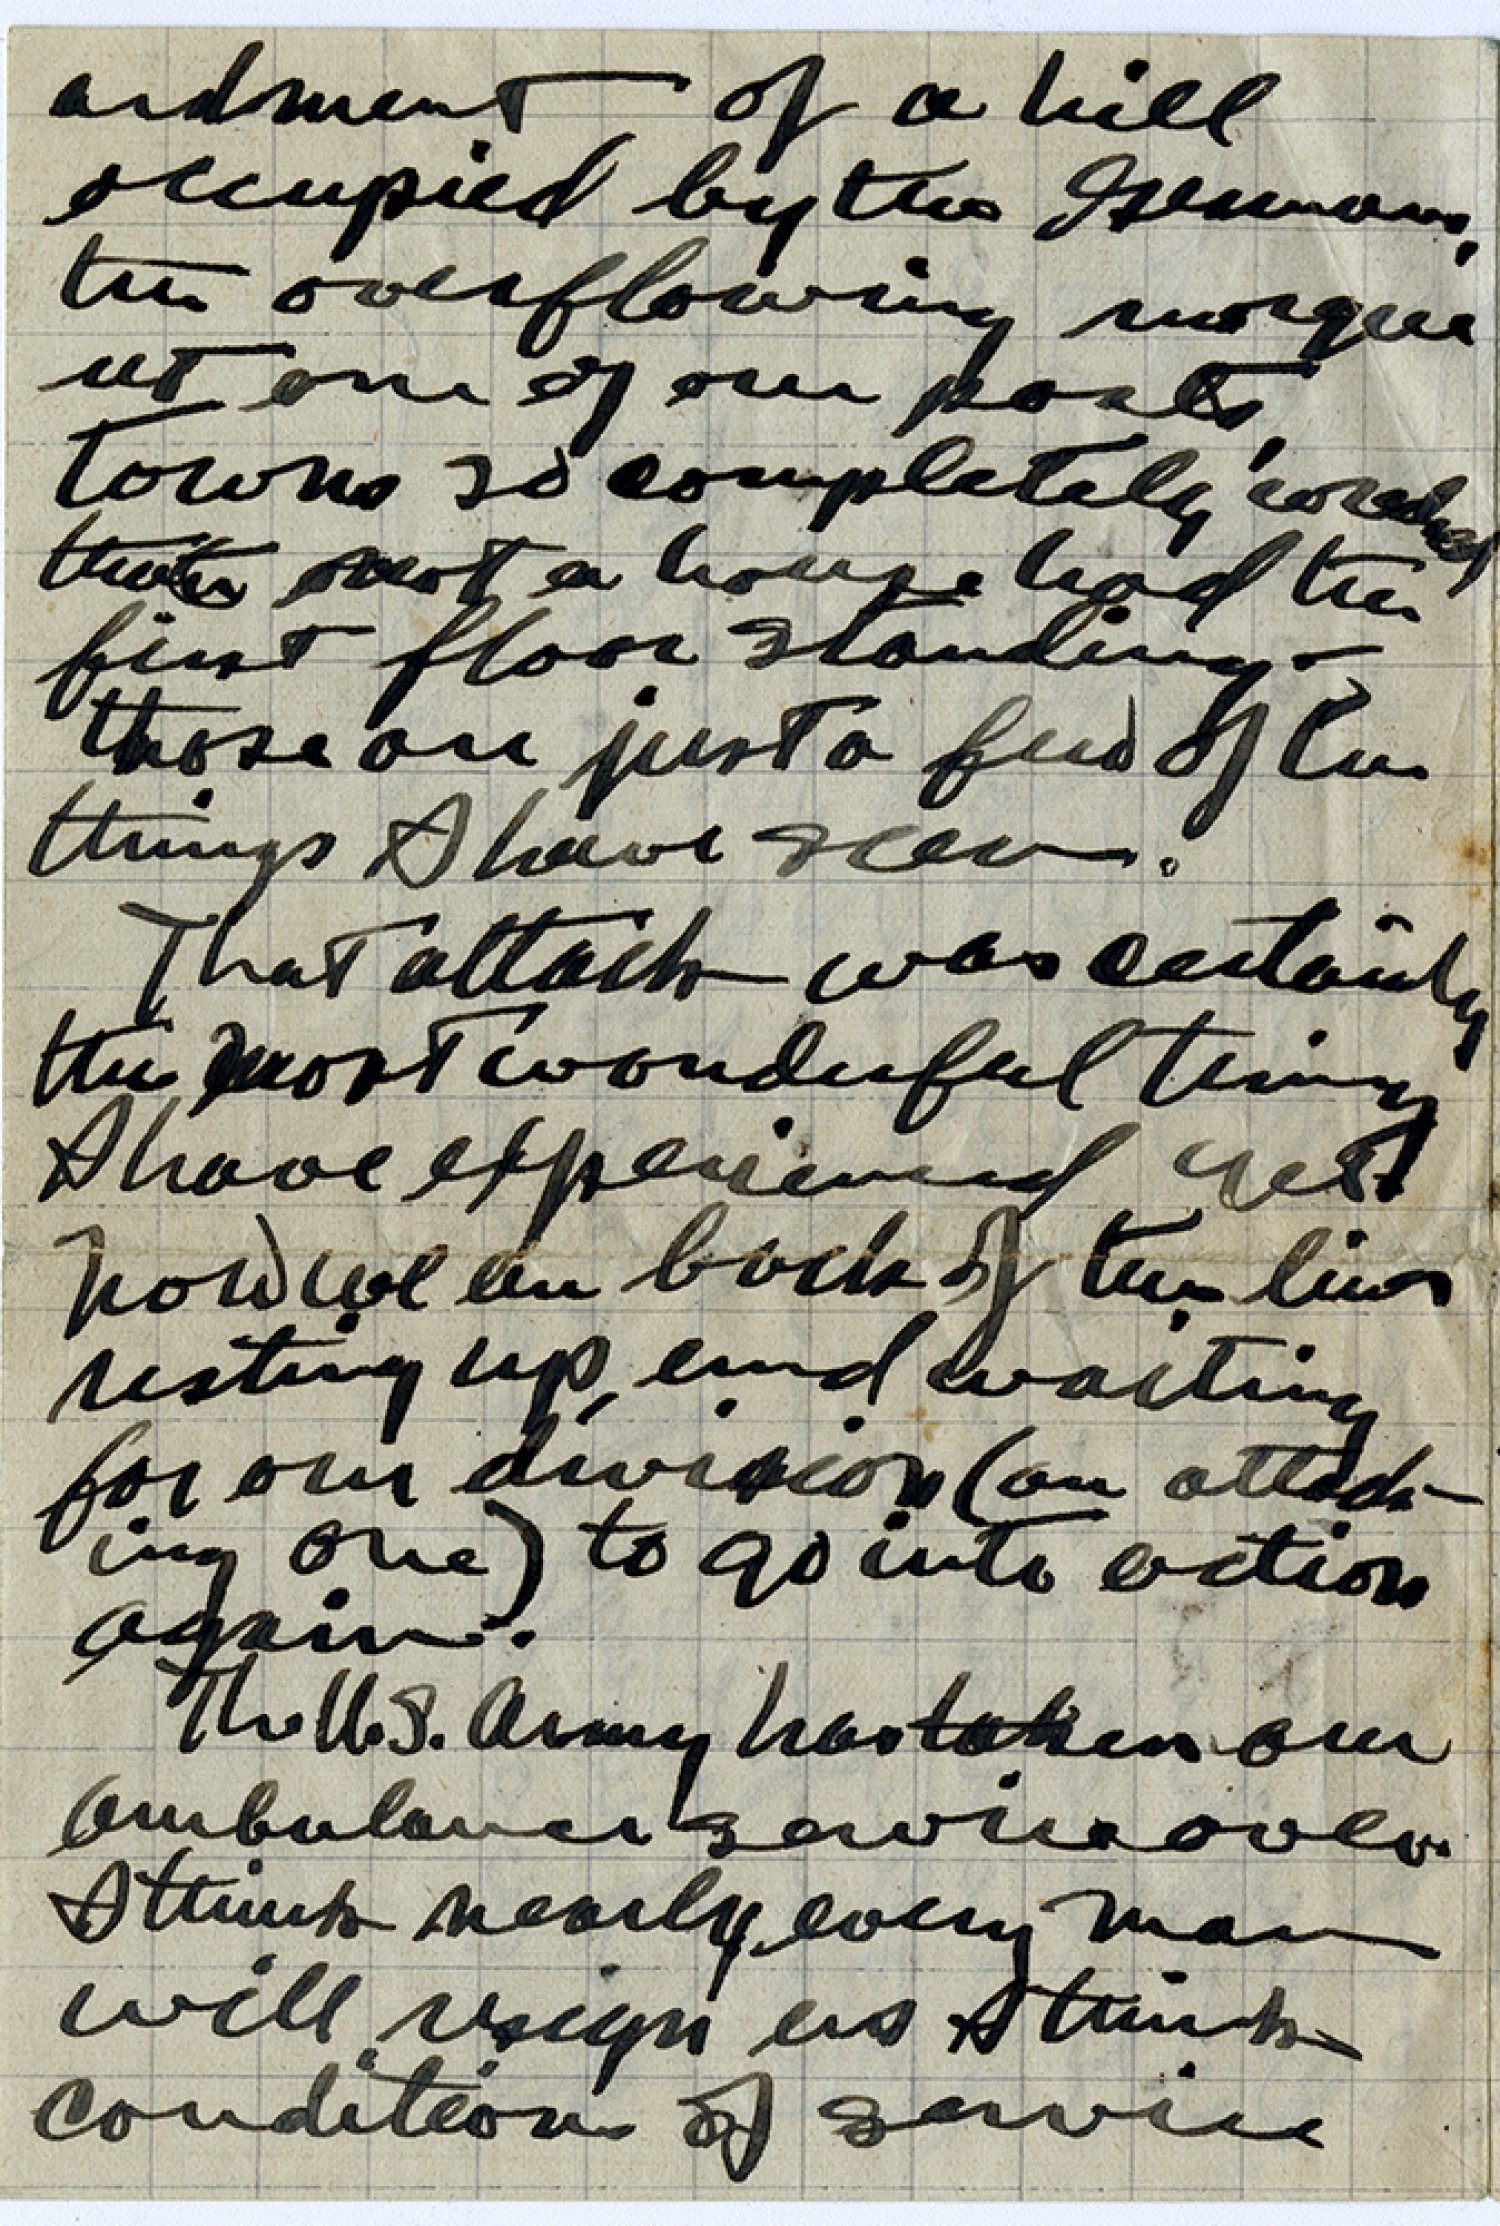 ardment of a hill
occupied by the Germans,
the overflowing morgue
at one of our posts,
towns so completely wrecked
that not a house had the
first floor standing -
those are just a few of the
things I have seen.
That attack was certainly
the most wonderful thing
I have experienced yet.
Now we are back of the lines
resting up, and waiting
for our division (an attack-
ing one) to go into action
again.
The U.S. Army has taken our
ambulance service over.
I think nearly every man
will resign as I think
conditions of service